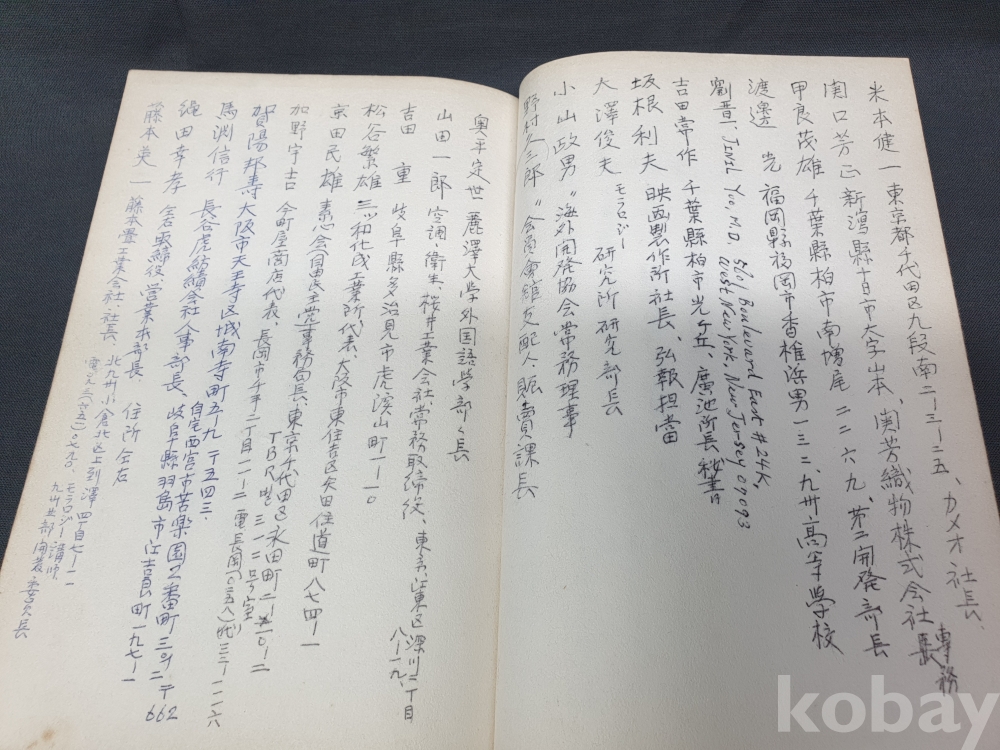 米本健一 東京都千代田区九段南二ー三ー五、カメオ社長、
関口芳正 新潟縣十日市大字山本、関芳織物株式会社 専務
甲良茂雄 千葉縣柏市南増尾二二六九、第二開発部長
渡邊 光 福岡縣福岡市香椎浜男一三二、九州高等学校
劉晋一、Jinil Yoo, M.D. 5601 Boulevard East #24K
West New York, New Jersey 07093
吉田常作 千葉縣柏市光ヶ丘、廣池所長秘書
坂根利夫 映画製作所社長、弘報担當
大澤俊夫 モラロジー研究所研究部長
小山政男 〃海外開発協会常務理事
野村久三郎 〃会館支配人、販賣課長
奥平定世 麗澤大学外国語学部々長
山田一郎 空調衛生、桜井工業会社常務取締役、東京、江東区深川二丁目
八ー一九、
吉田 重 岐阜縣多治見市虎渓山町一ー一〇
松谷繁雄 三ツ和化成工業所代表、大阪市東住吉区矢田住道町八七四ー一
京田民雄 素心会(自由民主党事務局長、東京千代田区永田町二ー一〇ー二
TBRビル三一二号室
加野宇吉 今町屋商店代表、長岡市千手二丁目一一ー二 電長岡(〇二五八)(代)三三ー一一二六
賀陽邦壽 大阪市天王寺区城南寺町五ー九 〒五四三、
自宅西宮市苦楽園二番町三ノ二 〒662
馬渕信行 長谷虎紡績会社人事部長、岐阜縣羽島市江吉良町一九七ー一
縄田幸孝 〃 取締役営業本部長、 住所仝右
藤本英一 藤本畳工業会社々長、北九州小倉北区上到津四丁目七ー一一
モラロジー講師、